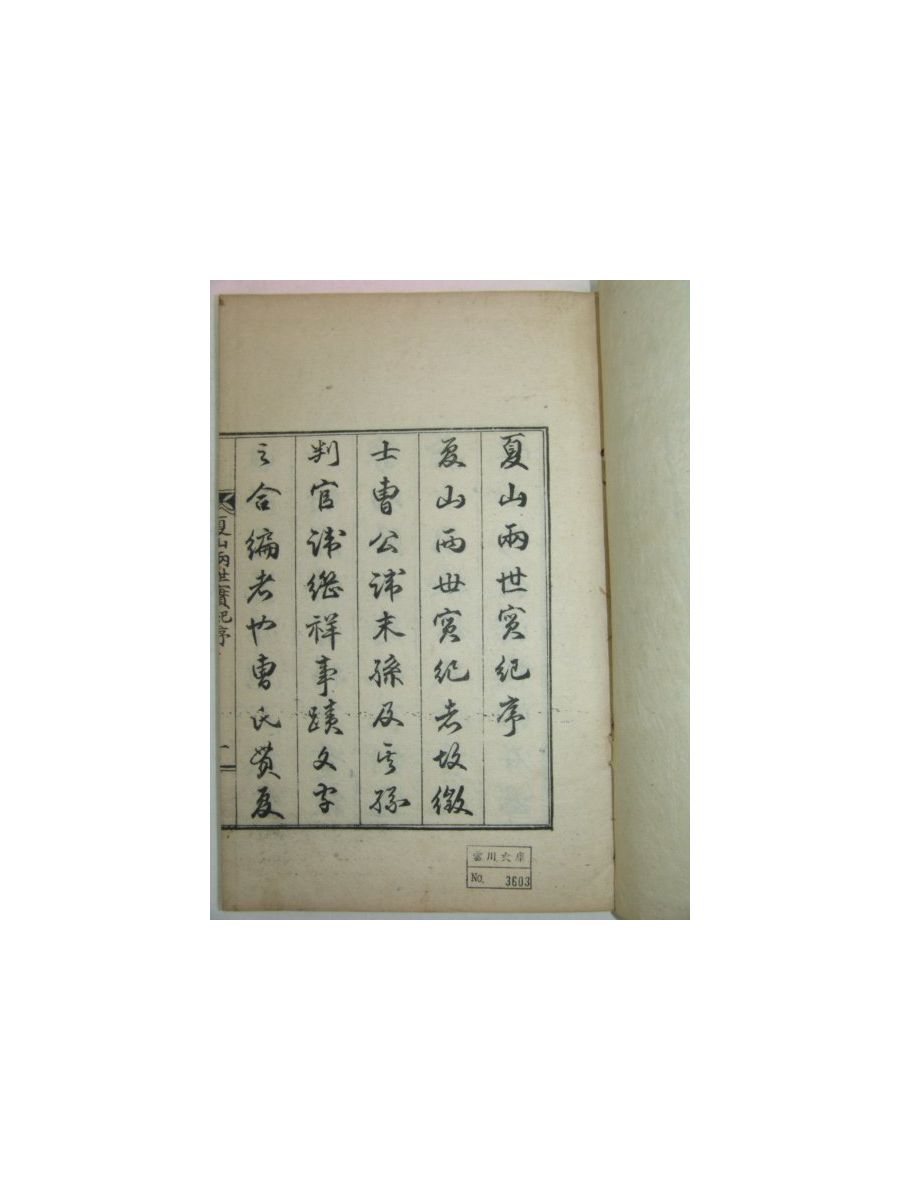 夏山兩世實紀序
夏山兩世實紀者故徵
士曺公諱末孫及其孫
判官諱繼祥事蹟文字
之合編者也曺氏貫夏
夏山兩世實紀序
一
川文庫
No. 3603